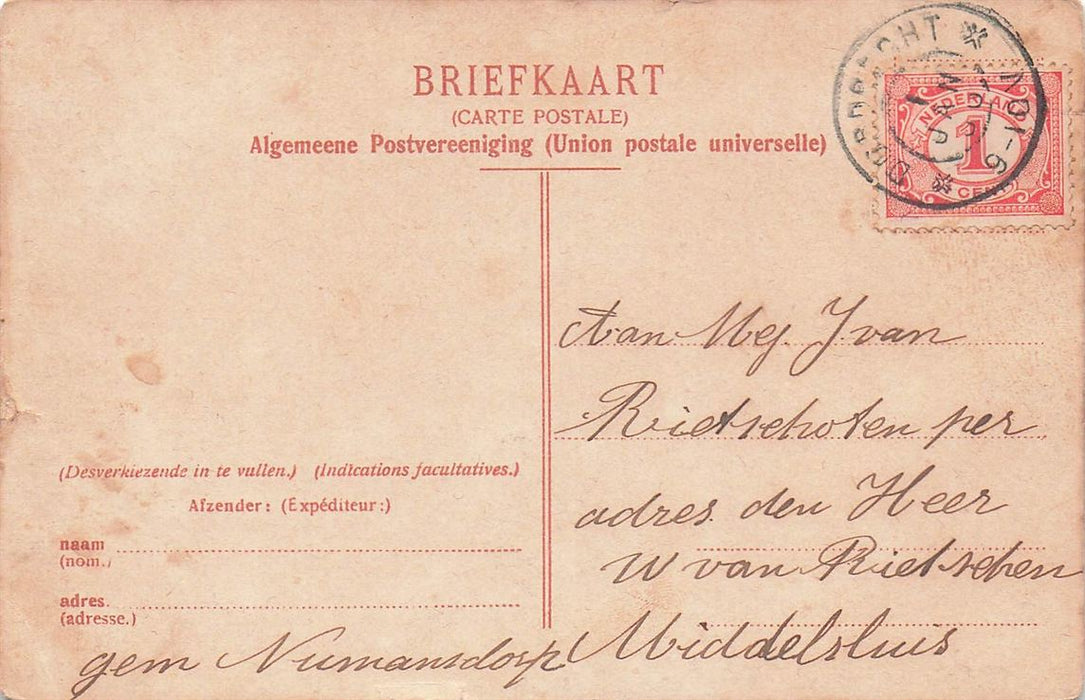 BRIEFKAART
(CARTE POSTALE)
Algemeene Postvereeniging (Union postale universelle)
DORDRECHT
JAN
NEDERLAND
1
CENT
Aan Mej. J van
Rietschoten per
adres. den Heer
W van Rietschen
Middelsluis
gem Numansdorp
(Desverkiezende in te vullen.) (Indications facultatives.)
Afzender: (Expéditeur:)
naam
(nom.)
adres.
(adresse.)